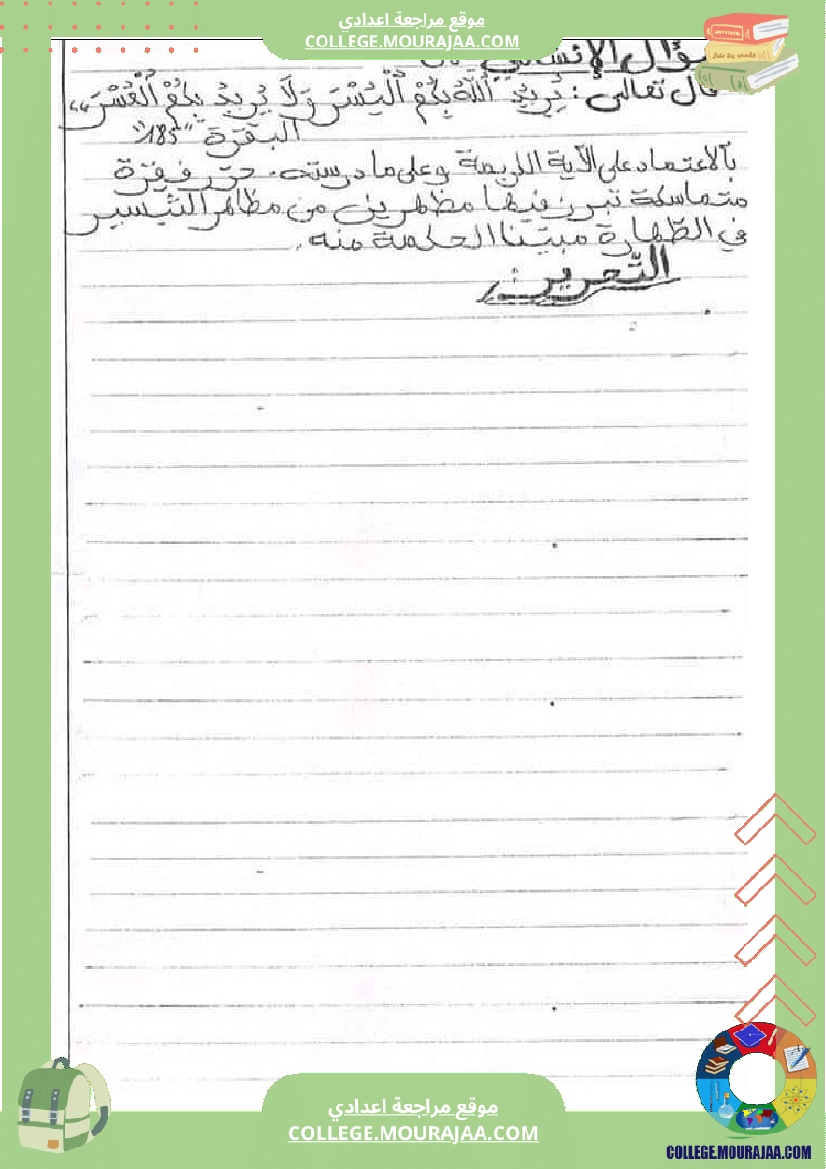 موقع مراجعة اعدادي
COLLEGE.MOURAJAA.COM
قال تعالى : يُرِيدُ ٱللَّهُ بِكُمُ ٱلْيُسْرَ وَلَا يُرِيدُ بِكُمُ ٱلْعُسْرَ
البقرة "185"
بالاعتماد على الآية الكريمة وعلى ما درسته. حرّر فقرة
متماسكة تبرز فيها مظهرين من مظاهر التّيسير
في الطّهارة مبيّنا الحكمة منه.
التّحرير:
موقع مراجعة اعدادي
COLLEGE.MOURAJAA.COM
COLLEGE.MOURAJAA.COM